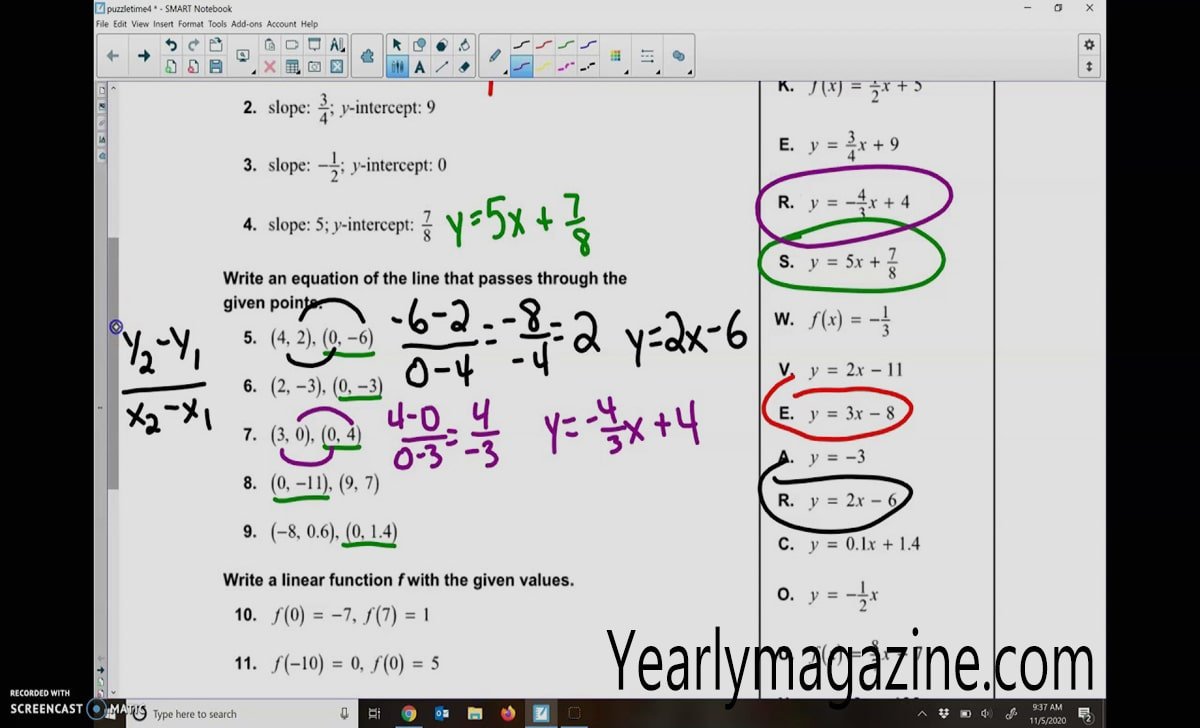 puzzletime4 * - SMART Notebook
File Edit View Insert Format Tools Add-ons Account Help
2. slope: 3/4; y-intercept: 9
3. slope: −1/2; y-intercept: 0
4. slope: 5; y-intercept: 7/8 y=5x+7/8
Write an equation of the line that passes through the
given points.
5. (4, 2), (0, −6) -6-2/0-4 = -8/-4 = 2 y=2x-6
y2-y1/x2-x1
6. (2, −3), (0, −3)
7. (3, 0), (0, 4) 4-0/0-3 = 4/-3 y=-4/3x+4
8. (0, −11), (9, 7)
9. (−8, 0.6), (0, 1.4)
Write a linear function f with the given values.
10. f(0) = −7, f(7) = 1
11. f(−10) = 0, f(0) = 5
K. f(x) = 1/2x + 5
E. y = 3/4x + 9
R. y = −4/3x + 4
S. y = 5x + 7/8
W. f(x) = −1/3
V. y = 2x − 11
E. y = 3x − 8
A. y = −3
R. y = 2x − 6
C. y = 0.1x + 1.4
O. y = −1/2x
Yearlymagazine.com
RECORDED WITH
SCREENCAST MATIC
Type here to search
9:37 AM
11/5/2020